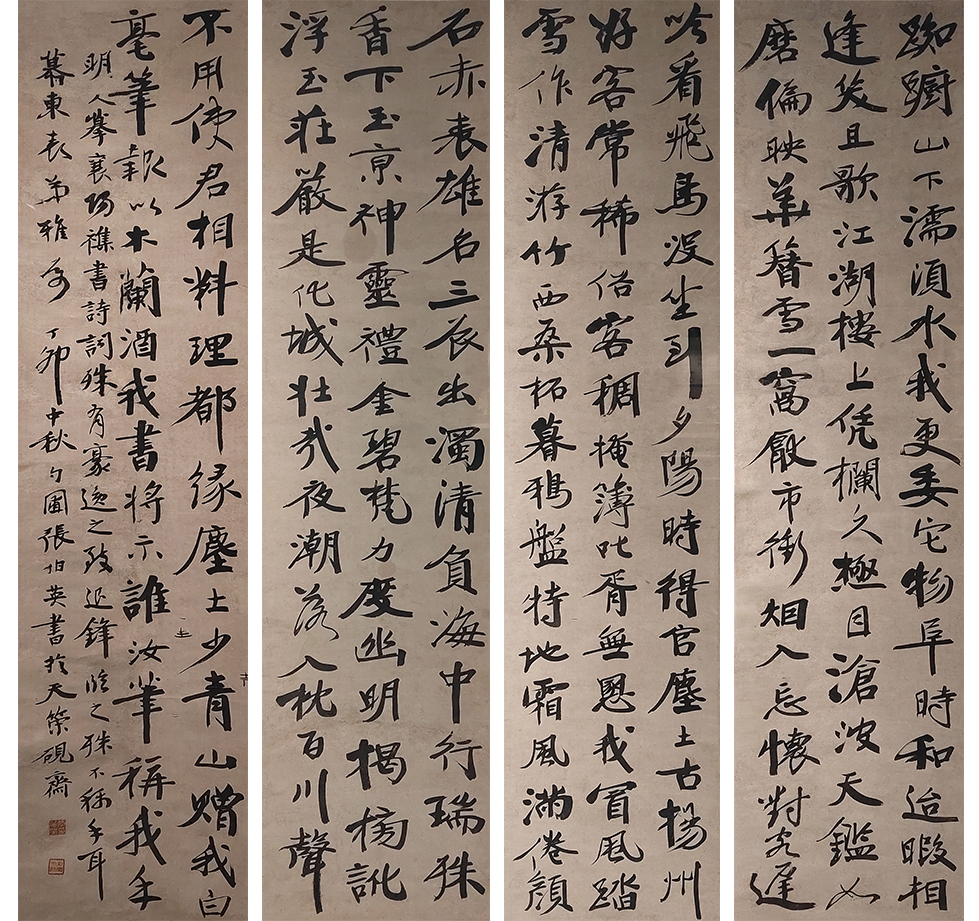 踟蹰山下濡須水我更委它物阜時和迨暇相
逢笑且歌江湖樓上凭欄久極目滄波天鑑如
磨偏映華簪雪一窩厭市衝烟入忘懷對客遲
吟看飛鳥没坐到夕陽時得官塵土古揚州
好客常稀俗客稠掩簿叱胥無恩我冒風踏
雪作清游竹西桑柘暮鴉盤特地霜風滿倦顔
石赤表雄名三辰出濁清負海中行瑞殊
香下玉京神靈禮金碧梵力度幽明楬訛
浮玉莊嚴是化城壯哉夜潮落入枕百川聲
不用使君相料理都緣塵土少青山贈我白
毫筆報以木蘭酒我書將示誰汝筆稱我手
明人摹襄陽襍書詩詞殊有豪逸之致退鋒臨之殊不稱手耳
慕東表弟雅屬 丁卯中秋勺圃張伯英書於天籟硯齋